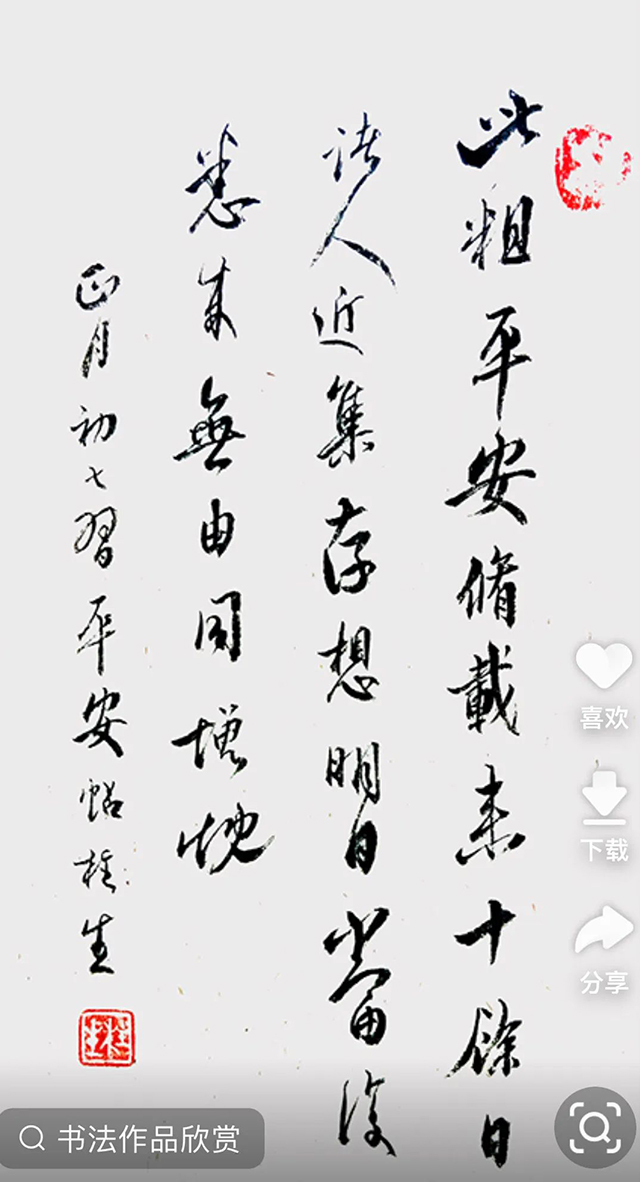 此粗平安脩載来十餘日
諸人近集存想明日當復
悉来無由同增慨
正月初七習平安帖桂生
喜欢
下载
分享
书法作品欣赏